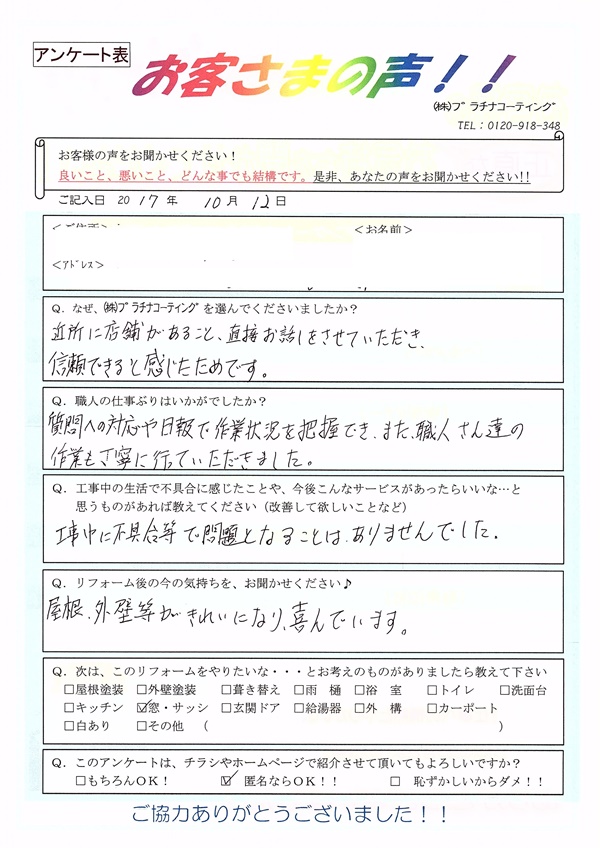 アンケート表
お客さまの声！！
㈱プラチナコーティング
TEL：0120-918-348
お客様の声をお聞かせください！
良いこと、悪いこと、どんな事でも結構です。是非、あなたの声をお聞かせください!!
ご記入日 2017年 10月 12日
＜お名前＞
＜アドレス＞
Q．なぜ、㈱プラチナコーティングを選んでくださいましたか？
近所に店舗があること、直接お話しをさせていただき、
信頼できると感じたためです。
Q．職人の仕事ぶりはいかがでしたか？
質問への対応や日報で作業状況を把握でき、また、職人さん達の
作業も丁寧に行っていただきました。
Q．工事中の生活で不具合に感じたことや、今後こんなサービスがあったらいいな…と
思うものがあれば教えてください（改善して欲しいことなど）
工事中に不具合等で問題となることは、ありませんでした。
Q．リフォーム後の今の気持ちを、お聞かせください♪
屋根、外壁等がきれいになり、喜んでいます。
Q．次は、このリフォームをやりたいな・・・とお考えのものがありましたら教えて下さい
□屋根塗装 □外壁塗装 □葺き替え □雨 樋 □浴 室 □トイレ □洗面台
□キッチン ☑窓・サッシ □玄関ドア □給湯器 □外 構 □カーポート
□白あり □その他 （ ）
Q．このアンケートは、チラシやホームページで紹介させて頂いてもよろしいですか？
□もちろんOK！ ☑ 匿名ならOK！！ □ 恥ずかしいからダメ！！
ご協力ありがとうございました！！